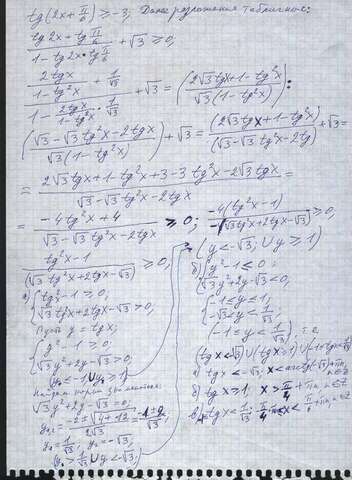 tg(2x + π/6) ≥ -3, Дано разложение табличное:
(tg2x + tg π/6)/(1 - tg2x · tg π/6) + √3 ≥ 0,
(2tgx/(1 - tg²x) + 1/√3)/(1 - 2tgx/(1 - tg²x) · 1/√3) + √3 = ((2√3 tgx + 1 - tg²x)/(√3(1 - tg²x))) :
((√3 - √3 tg²x - 2tgx)/(√3(1 - tg²x))) + √3 = (2√3 tgx + 1 - tg²x)/(√3 - √3 tg²x - 2tgx) + √3 =
= (2√3 tgx + 1 - tg²x + 3 - 3tg²x - 2√3 tgx)/(√3 - √3 tg²x - 2tgx) =
= (-4tg²x + 4)/(√3 - √3 tg²x - 2tgx) ≥ 0; -4(tg²x - 1)/-(√3tg²x + 2tgx - √3) ≥ 0,
(tg²x - 1)/(√3 tg²x + 2tgx - √3) ≥ 0,
а) { tg²x - 1 ≥ 0,
√3 tg²x + 2tgx - √3 > 0,
Пусть y = tgx,
{ y² - 1 ≥ 0,
√3y² + 2y - √3 > 0,
√3y² + 2y - √3 = 0,
y₁,₂ = (-2 ± √(4 + 12))/2√3 = (-1 ± 2)/√3,
y₁ = 1/√3, y₂ = -√3,
{ y ≤ -1 ∪ y ≥ 1,
y > 1/√3 ∪ y < -√3,
(y < -√3, ∪ y ≥ 1)
б) { y² - 1 ≤ 0,
√3y² + 2y - √3 < 0,
{ -1 ≤ y ≤ 1,
-√3 < y < 1/√3,
(-1 ≤ y < 1/√3) т.е.
(tgx < -√3) ∪ (tgx ≥ 1) ∪ (-1 ≤ tgx < 1/√3)
а) tgx < -√3,
б) tgx ≥ 1,